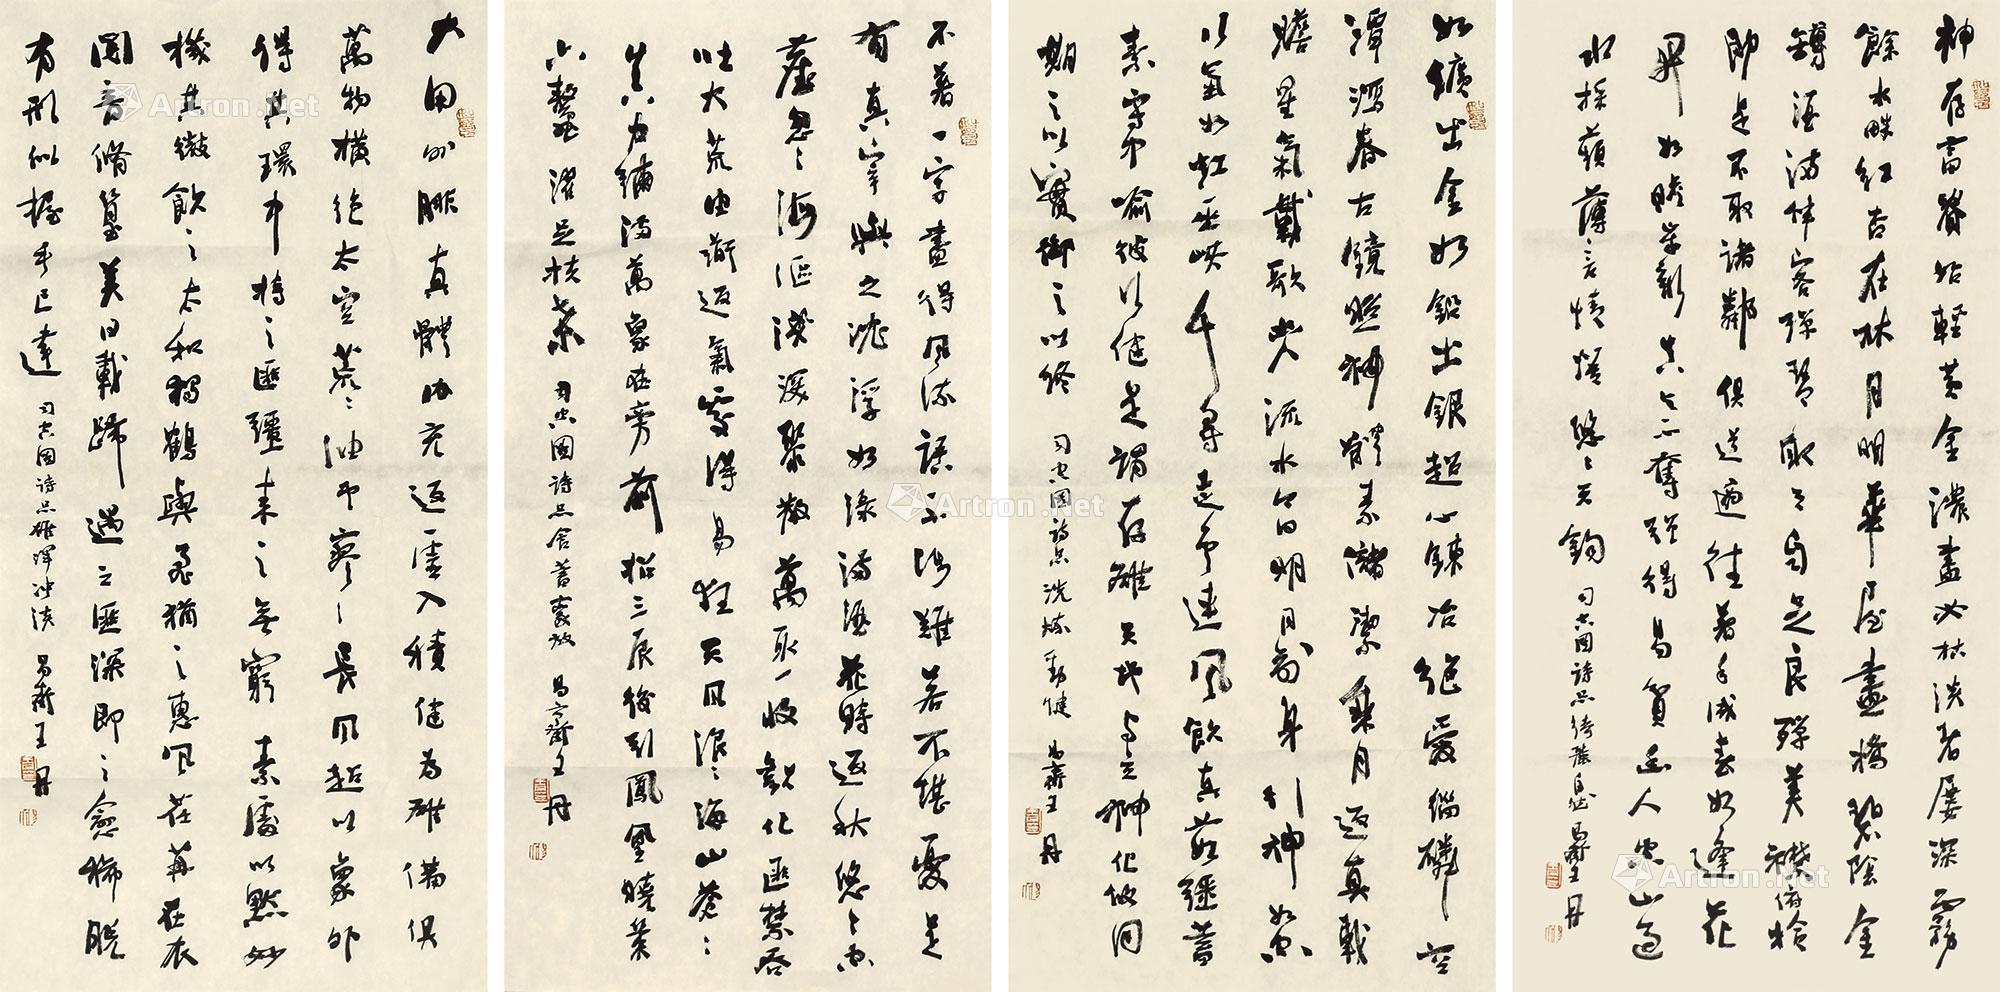 神存富貴始輕黃金濃盡必枯淡者屢深霧
餘水畔紅杏在林月明華屋畫橋碧陰金
罇酒滿伴客彈琴取之自足良殫美襟俯拾
即是不取諸鄰俱道適往著手成春如逢花
開如瞻歲新真與不奪強得易貧幽人空山過
水採蘋薄言情悟悠々天鈞 司空圖詩品綺麗自然 易齋王丹
如鑛出金如鉛出銀超心鍊冶絕愛緇磷空
潭瀉春古鏡照神體素儲潔乘月返真載
瞻星氣載歌幽人流水今日明月前身行神如空
行氣如虹巫峽千尋走雲連風飲真茹強蓄
素守中喻彼行健是謂存雄天地與立神化攸同
期之以實御之以終 司空圖詩品洗煉勁健 易齋王丹
不著一字盡得風流語不涉難若不堪憂是
有真宰與之沈浮如淥滿酒花時返秋悠々空
塵忽々海漚淺深聚散萬取一收觀化匪禁吞
吐大荒由道返氣處得易狂天風浪々海山蒼々
真力彌滿萬象在旁前招三辰後引鳳凰曉策
六鰲濯足扶桑 司空圖詩品含蓄豪放 易齋王丹
大用外腓真體內充返虛入積健為雄備具
萬物橫絕太空荒々油雲寥々長風超以象外
得其環中持之匪強來之無窮素處以默妙
機其微飲之太和獨鶴與飛猶之惠風荏苒在衣
閱音脩篁美曰載歸遇之匪深即之愈稀脫
有形似握手已違 司空圖詩品雄渾沖淡 易齋王丹
Artron.Net
Artron.Net
Artron.Net
Artron.Net